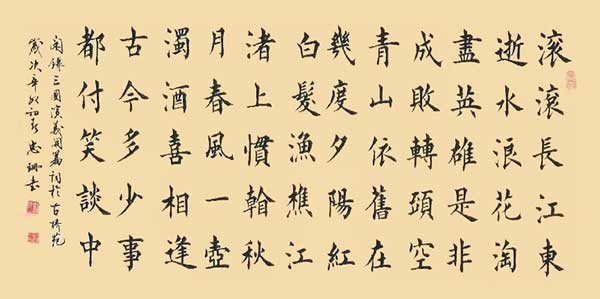 滚滚長江東
逝水浪花淘
盡英雄是非
成敗轉頭空
青山依舊在
幾度夕陽紅
白髮漁樵江
渚上慣翰秋
月春風一壺
濁酒喜相逢
古今多少事
都付笑談中
錄三國演義開篇詞於古琦苑
歲次辛卯初 忠 書